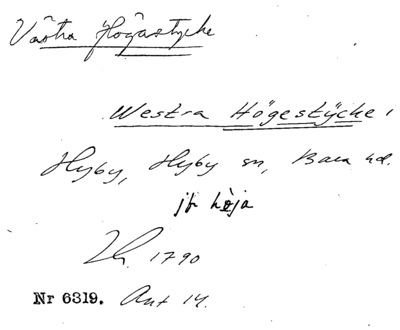 Västra Högastycke
Westra Högestÿcke,
Hyby, Hyby sn, Bara hd.
jfr höja
Lh. 1790
Nr 6319. Ant 14.